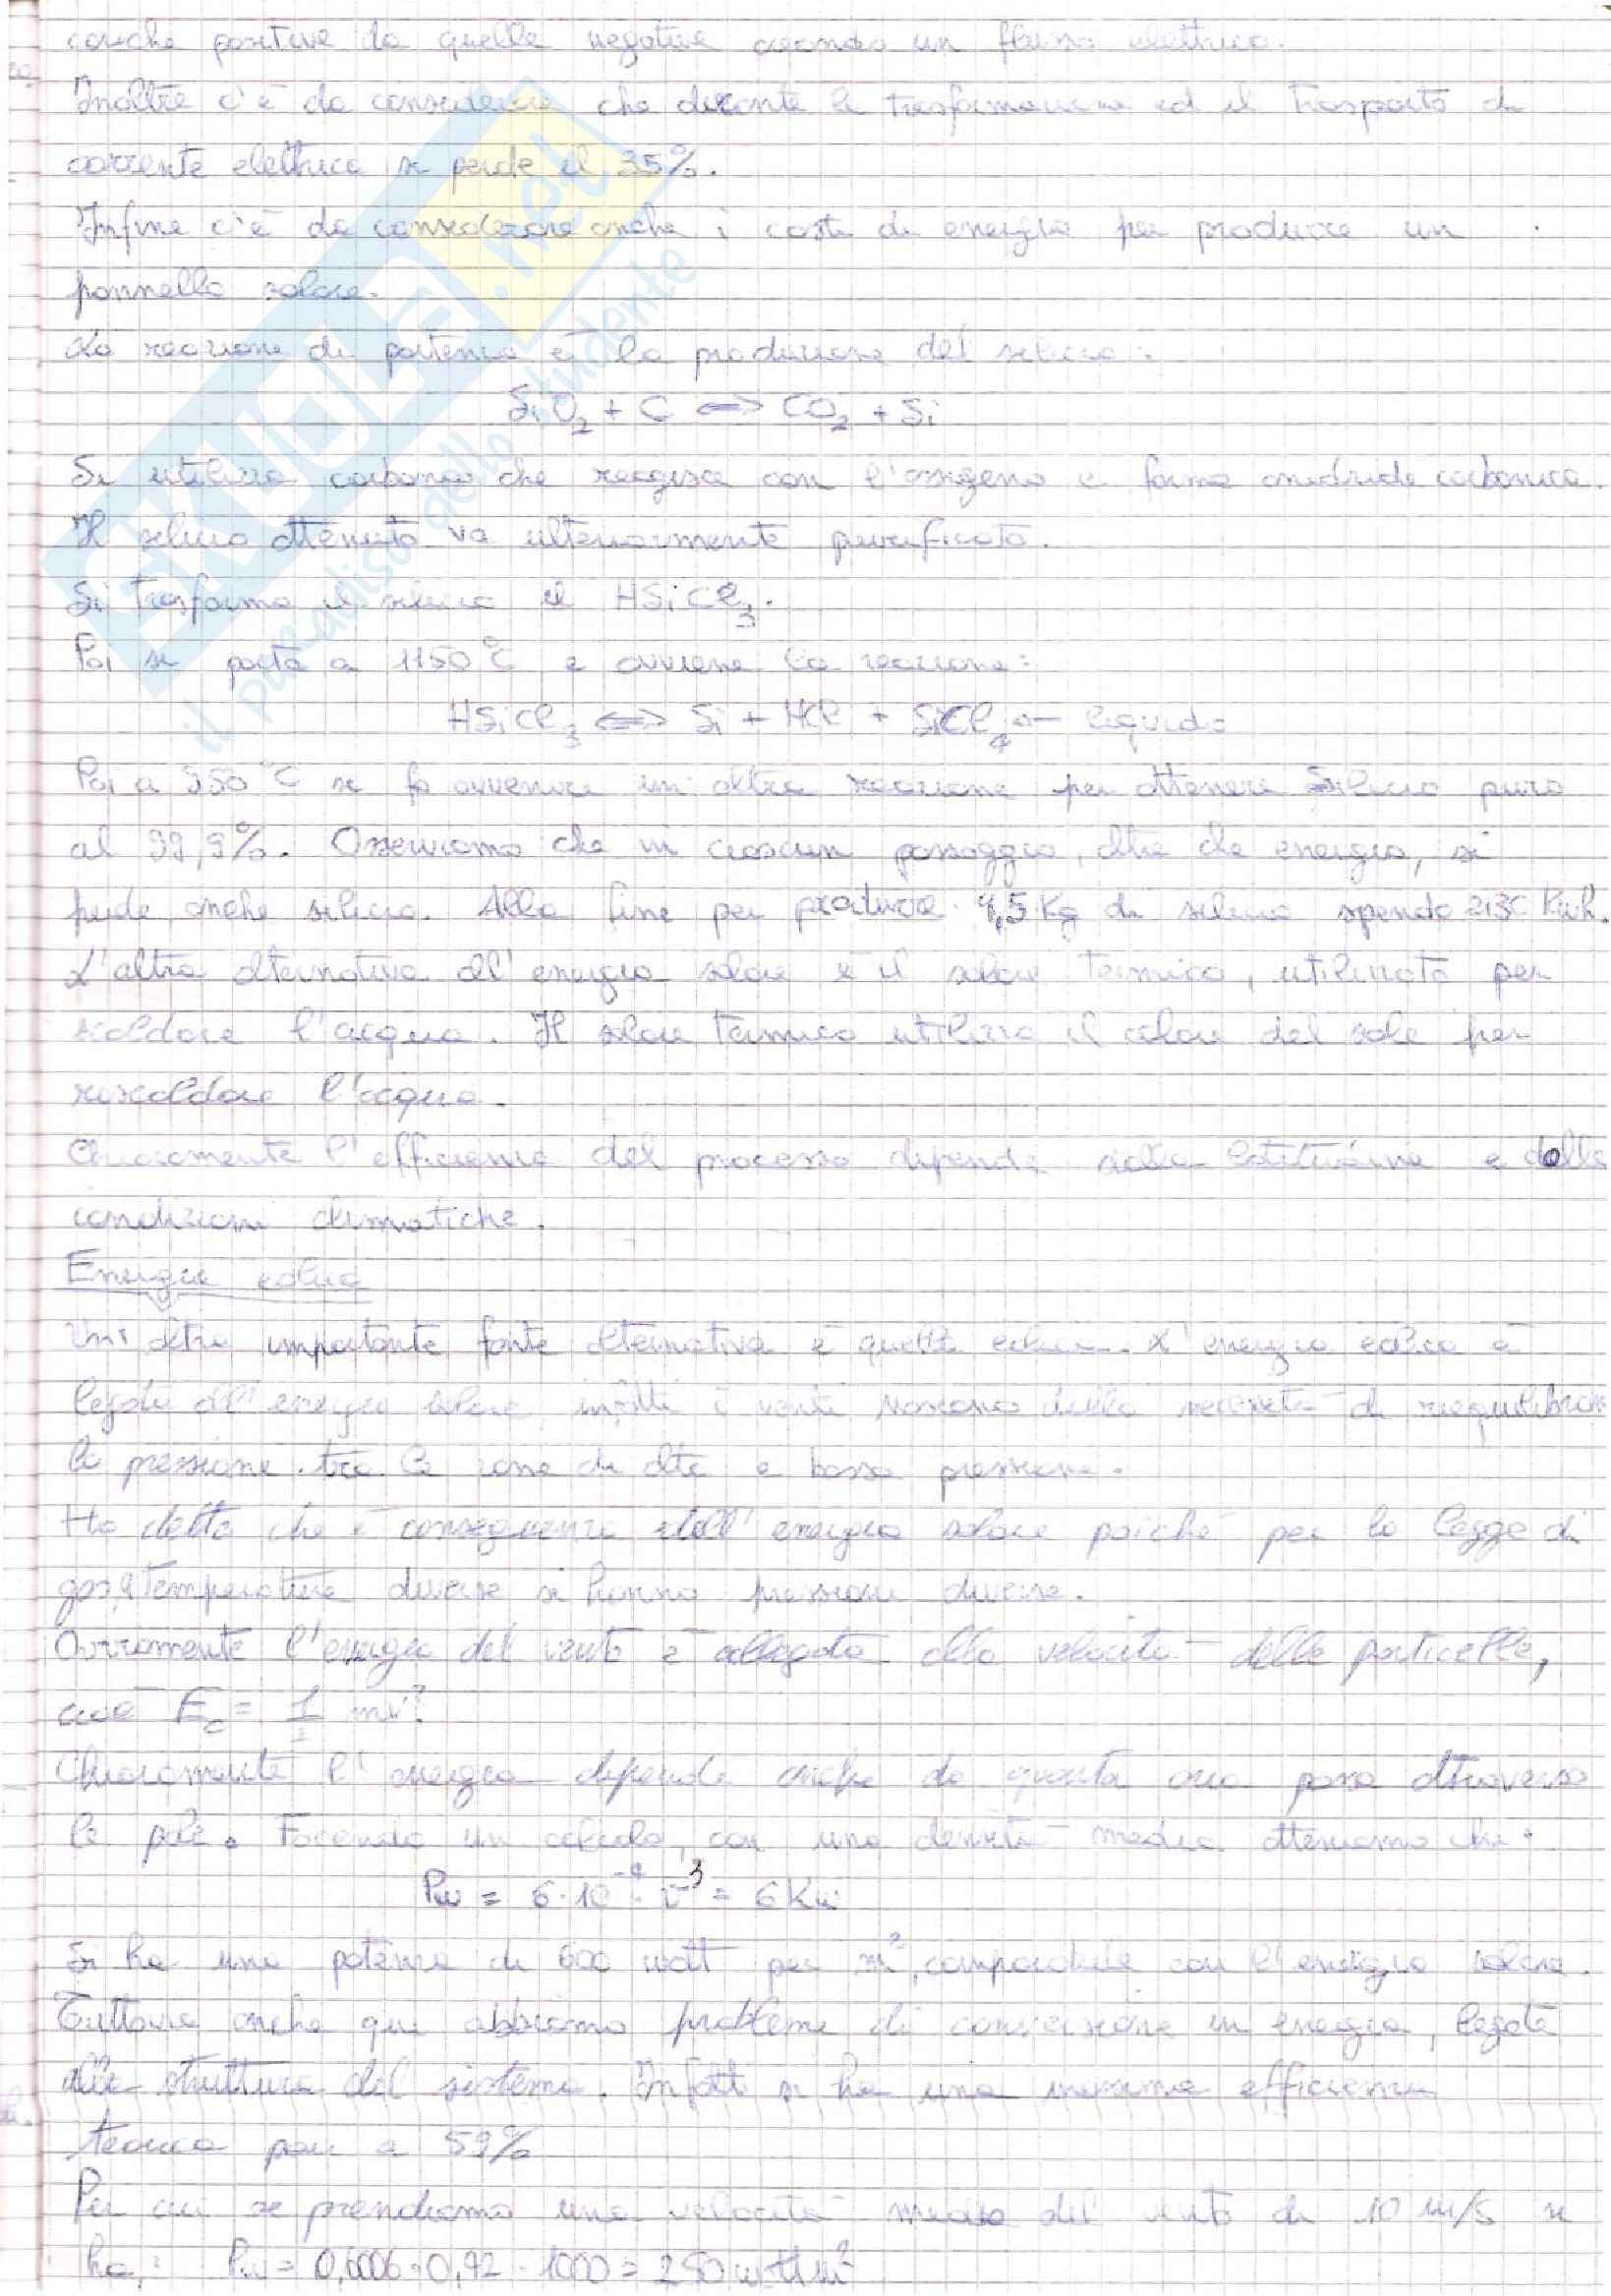 cariche positive da quelle negative creando un flusso elettrico.
Inoltre c'è da considerare che durante la trasformazione ed il trasporto di
corrente elettrica si perde il 35%.
Infine c'è da considerare anche i costi di energia per produrre un
pannello solare.
La reazione di partenza è la produzione del silicio:
SiO2 + C ⇔ CO2 + Si
Si utilizza carbonio che reagisce con l'ossigeno e forma anidride carbonica.
Il silicio ottenuto va ulteriormente purificato.
Si trasforma il silicio il HSiCl3.
Poi si porta a 1150°C e avviene la reazione:
HSiCl3 ⇔ Si + HCl + SiCl4 ← liquido
Poi a 950°C si fa avvenire un'altra reazione per ottenere Silicio puro
al 99,9%. Osserviamo che in ciascun passaggio, oltre che energia, si
perde anche silicio. Alla fine per produrre Kg di silicio spendo 2130 Kwh.
L'altra alternativa all'energia solare è il solare termico, utilizzato per
scaldare l'acqua. Il solare termico utilizza il calore del sole per
riscaldare l'acqua.
Chiaramente l'efficienza del processo dipende dalla latitudine e dalle
condizioni climatiche.
Energia eolica
Un'altra importante fonte alternativa è quella eolica. L'energia eolica è
legata all'energia solare infatti i venti nascono dalla necessità di riequilibrare
la pressione tra le zone di alta e bassa pressione.
Ho detto che è conseguenza dell'energia solare poiché per la legge di
gas a temperature diverse si hanno pressioni diverse.
Ovviamente l'energia del vento è collegata alla velocità delle particelle,
cioè Ec = 1/2 mv²
Chiaramente l'energia dipende anche da quanta aria passa attraverso
le pale. Facendo un calcolo, con una densità media otteniamo che:
Pw = 6·10⁻⁴ · v³ = 6 Kw
Si ha una potenza di 600 watt per m², comparabile con l'energia solare.
Tuttavia anche qui abbiamo problemi di conversione in energia, legate
alla struttura del sistema. Infatti si ha una massima efficienza
teorica pari a 59%
Per cui se prendiamo una velocità media del vento di 10 m/s si
ha: Pw = 0,0006 · 0,42 · 1000 = 250 watt/m²